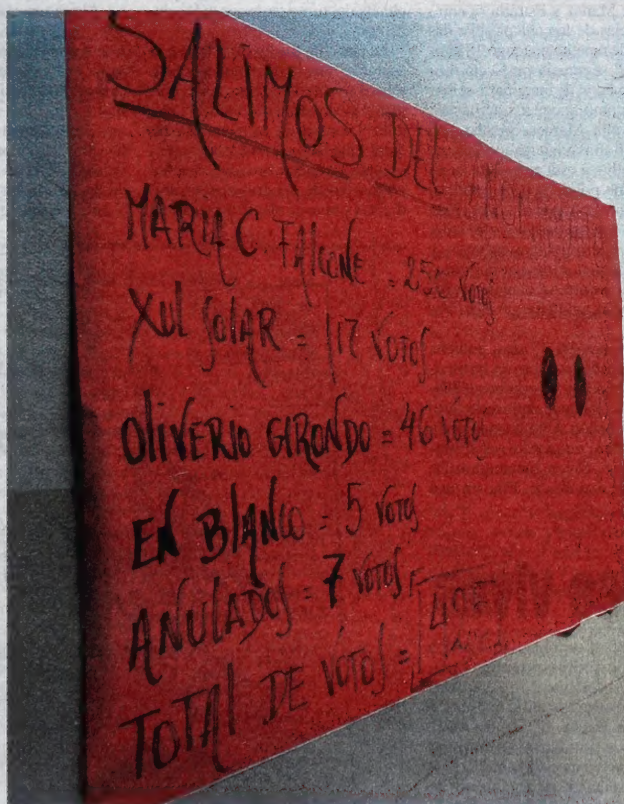 SALIMOS DEL
MARIA C. FALCONE = VOTOS
XUL SOLAR = 117 VOTOS
OLIVERIO GIRONDO = 46 VOTOS
EN BLANCO = 5 VOTOS
ANULADOS = 7 VOTOS
TOTAL DE VOTOS =